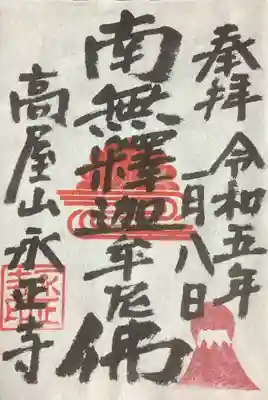 奉拝 令和五年
一月八日
南無釋迦牟尼佛
高屋山永正寺